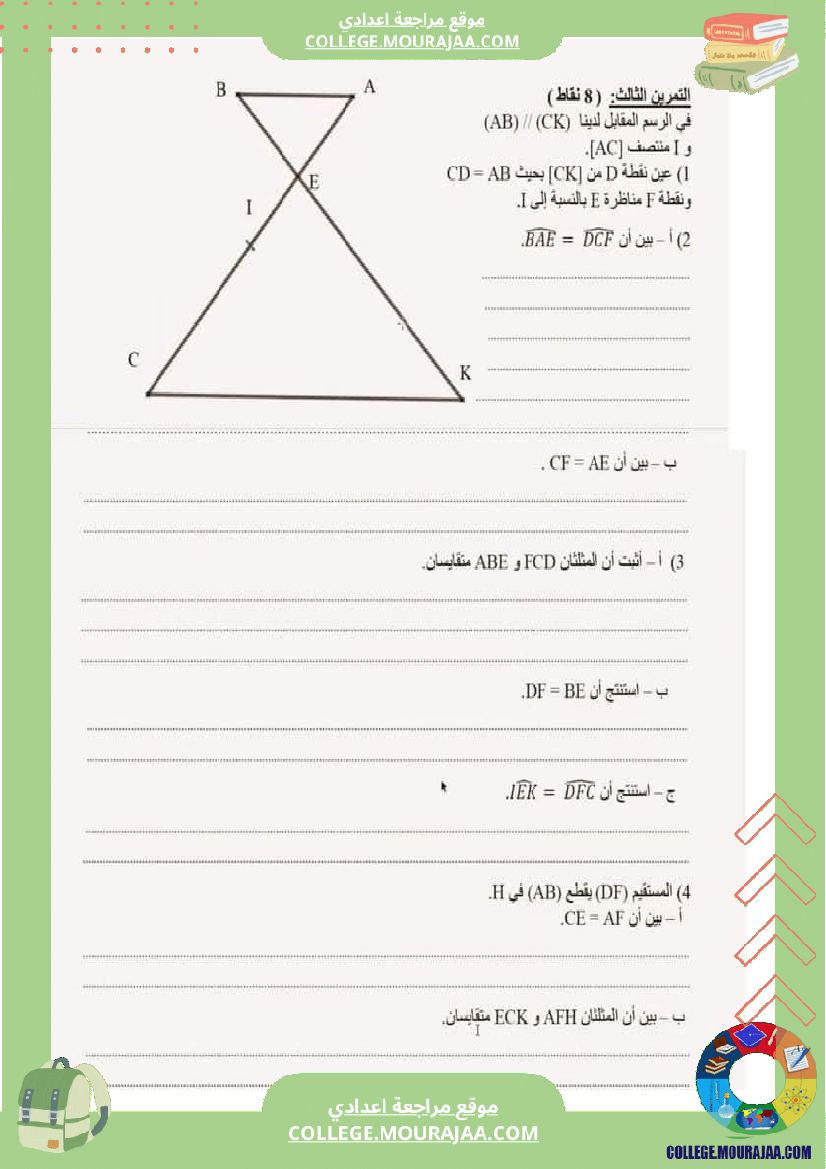 موقع مراجعة اعدادي
COLLEGE.MOURAJAA.COM
التمرين الثالث: (8 نقاط)
في الرسم المقابل لدينا (AB) // (CK)
و I منتصف [AC].
1) عين نقطة D من [CK] بحيث CD = AB
ونقطة F مناظرة E بالنسبة إلى I.
B
A
E
I
C
K
2) أ – بين أن \widehat{BAE} = \widehat{DCF}.
ب – بين أن CF = AE .
3) أ – أثبت أن المثلثان FCD و ABE متقايسان.
ب – استنتج أن DF = BE.
ج – استنتج أن \widehat{IEK} = \widehat{DFC}.
4) المستقيم (DF) يقطع (AB) في H.
أ – بين أن CE = AF.
ب – بين أن المثلثان AFH و ECK متقايسان.
موقع مراجعة اعدادي
COLLEGE.MOURAJAA.COM
COLLEGE.MOURAJAA.COM